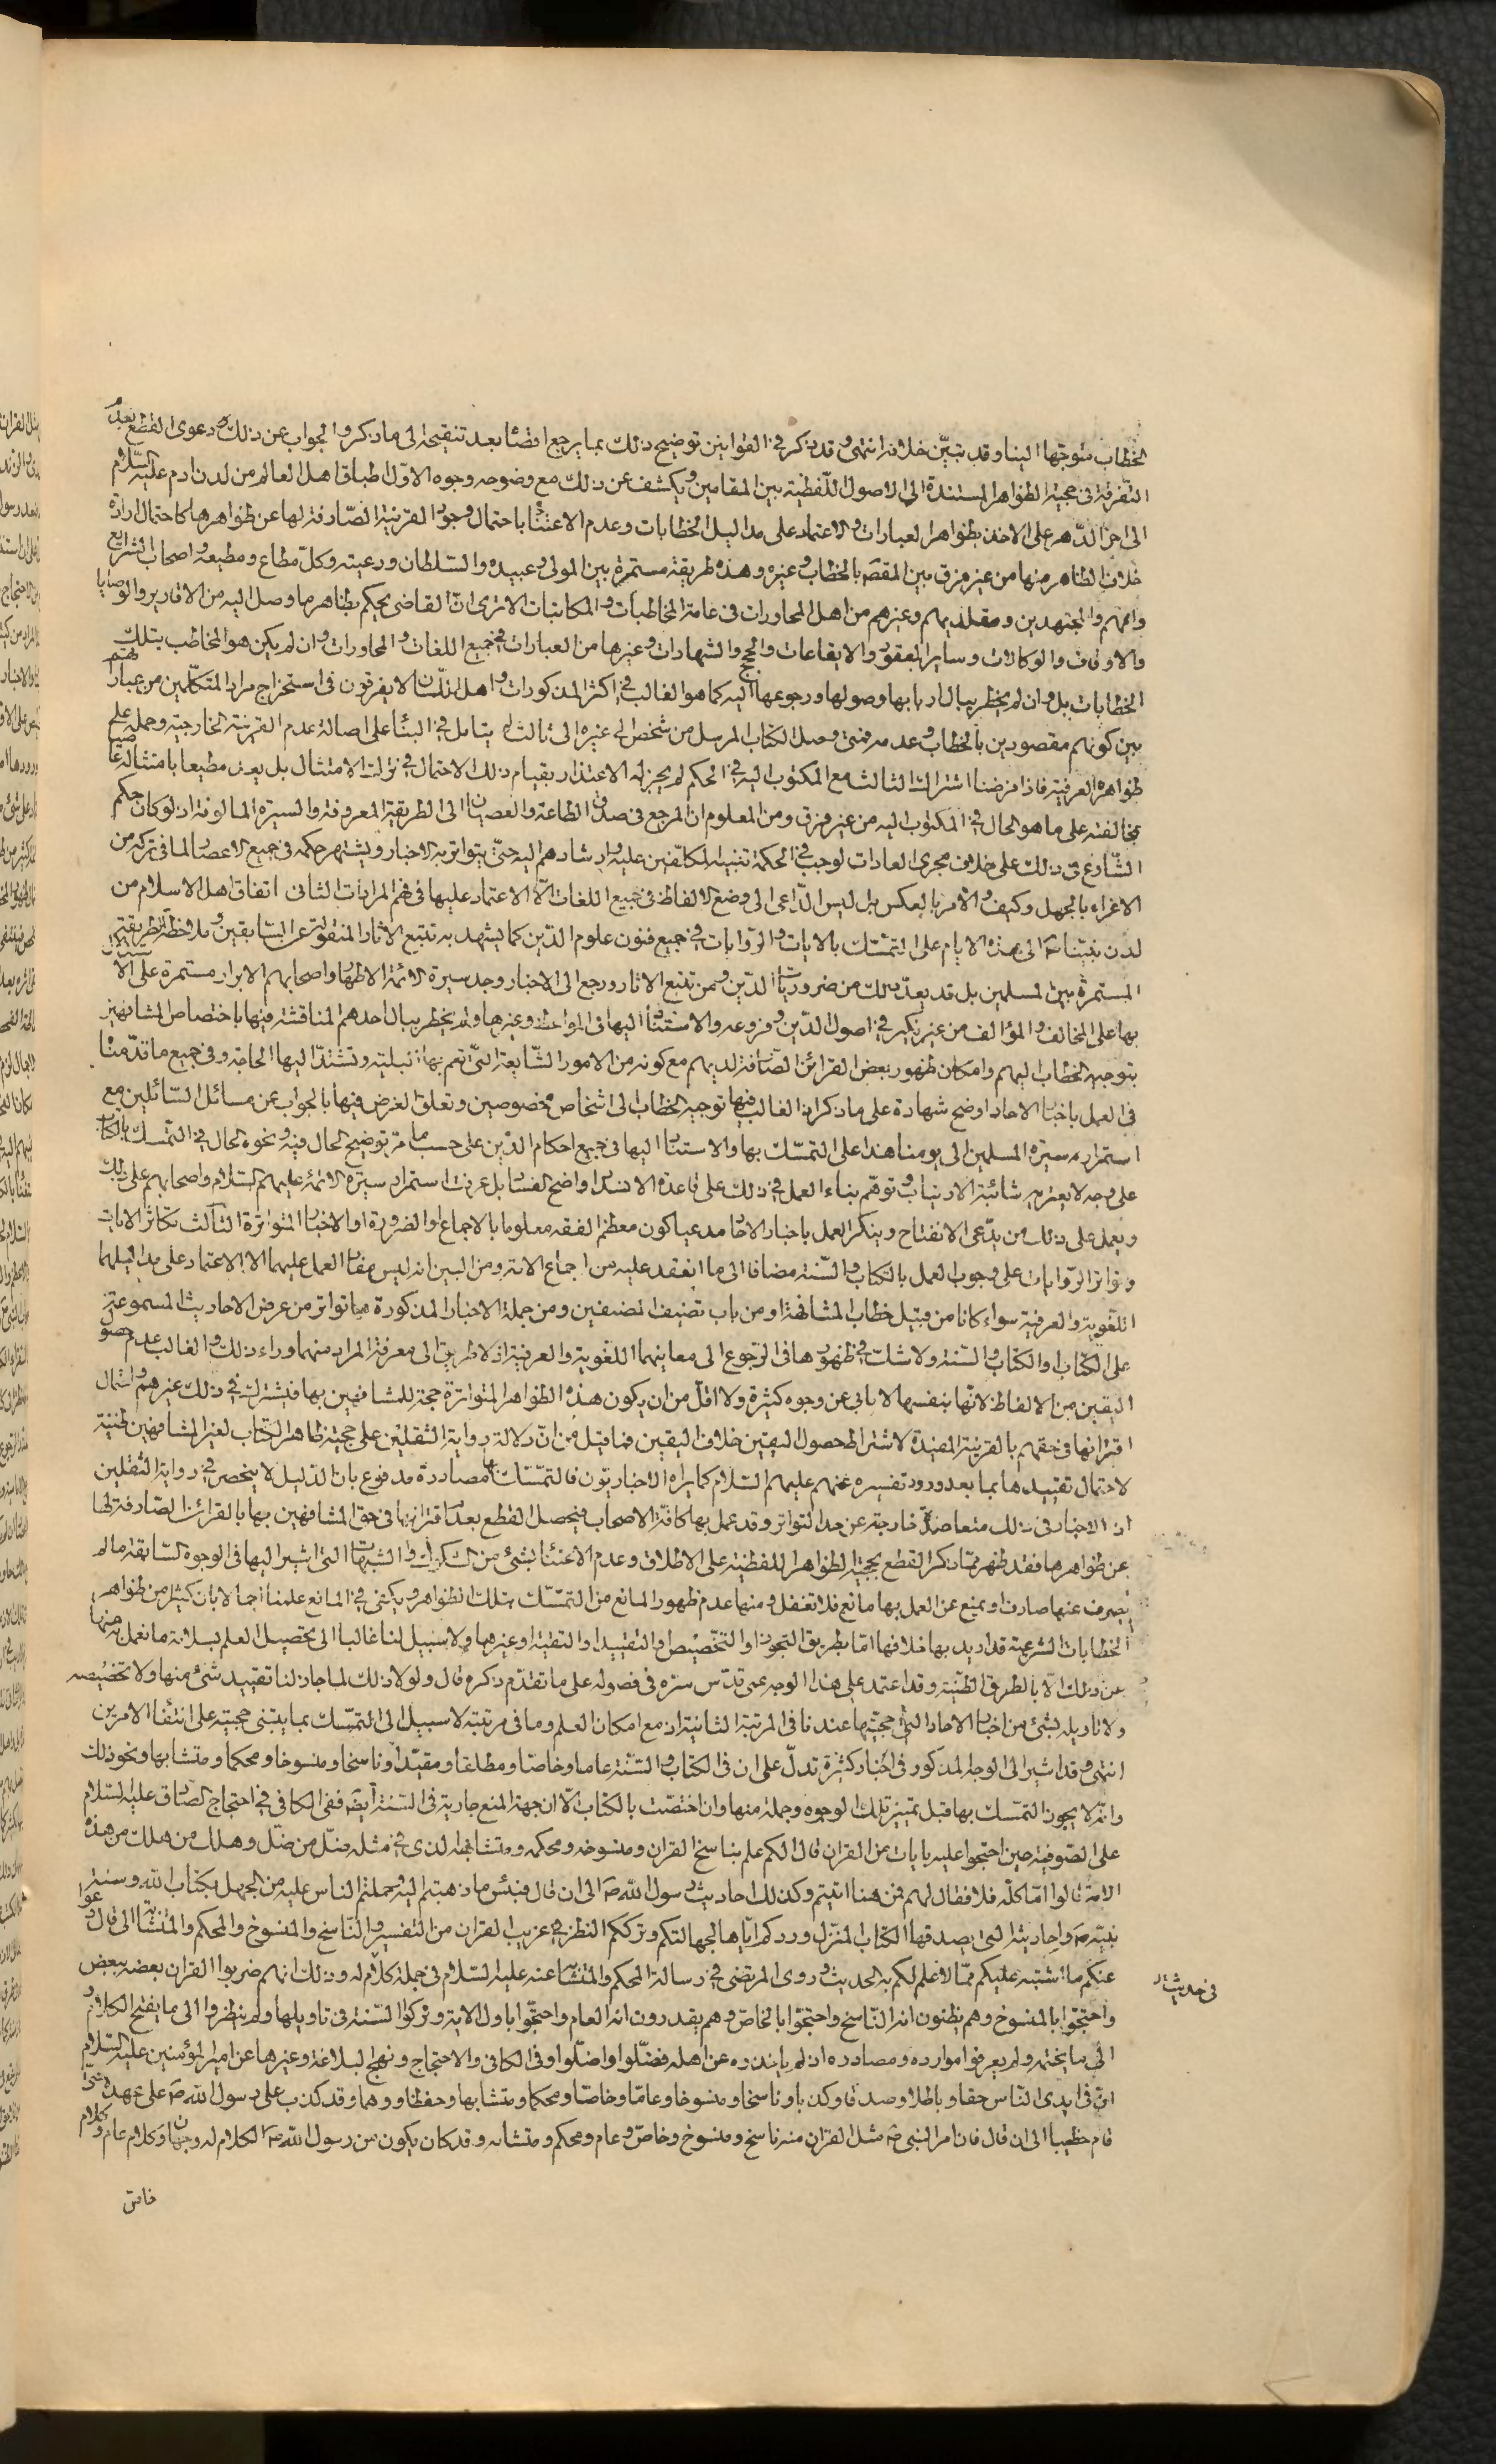 الخطاب متوجّها الينا وقد تبيّن خلافه انتهى وقد ذكر في القوانين توضيح ذلك بما يرجع ايضا بعد تنقيحه الى ما ذكر والجواب عن ذلك دعوى القطع بعدم
التفرقة في حجية الظواهر المستندة الى الاصول اللفظية بين المقامين ويكشف عن ذلك مع وضوحه وجوه الاوّل اطباق اهل العالم من لدن ادم عليه السّلام
الى اخر الدّهر على الاخذ بظواهر العبارات والاعتماد على مداليل الخطابات وعدم الاعتناء باحتمال وجود القرينة الصّارفة لها عن ظواهرها كاحتمال ارادة
خلاف الظاهر منها من غير فرق بين المقصود بالخطاب وغيره وهذه طريقة مستمرة بين المولى وعبيده والسّلطان ورعيته وكلّ مطاع ومطيعه واصحاب الشرايع
واممهم والمجتهدين ومقلديهم وغيرهم من اهل المحاورات في عامة المخاطبات والمكاتبات الا ترى انّ القاضي يحكم بظاهر ما وصل اليه من الاقارير والوصايا
والاوقاف والوكالات وساير العقود والايقاعات والحجج والشهادات وغيرها من العبارات في جميع اللغات والمحاورات وان لم يكن هو المخاطب بتلك
الخطابات بل وان لم يخطر ببال اربابها وصولها ورجوعها اليه كما هو الغالب في اكثر المذكورات واهل اللّسان لا يفرقون في استخراج مراد المتكلّمين من عبارتهم
بين كونهم مقصودين بالخطاب وعدمه فمتى وصل الكتاب المرسل من شخص الى غيره الى ثالث لم يتامل في البناء على اصالة عدم القرينة الخارجية وحمله على
ظواهره العرفية فاذا فرضنا اشتراك الثالث مع المكتوب اليه في الحكم لم يجز له الاعتذار بقيام ذلك الاحتمال في ترك الامتثال بل يعد مطيعا بامتثاله عاصيا
بمخالفته على ما هو الحال في المكتوب اليه من غير فرق ومن المعلوم ان المرجع في صدق الطاعة والعصيان الى الطريقة المعروفة والسيرة المالوفة اذ لو كان حكم
الشّارع في ذلك على خلاف مجرى العادات لوجب في الحكمة تنبيه المكلّفين عليه وارشادهم اليه حتى يتواتر به الاخبار ويشتهر حكمه في جميع الاعصار لما في تركه من
الاغراء بالجهل وكيف والامر بالعكس بل ليس الدّاعي الى وضع الالفاظ في جميع اللغات الّا الاعتماد عليها في فهم المرادات الثاني اتفاق اهل الاسلام من
لدن نبيّنا ص الى هذه الايام على التمسّك بالايات والرّوايات في جميع فنون علوم الدّين كما يشهد به تتبع الاثار المنقولة عن السّابقين وملاحظة الطريقة
المستمرة بين المسلمين بل قد يعدّ ذلك من ضروريات الدّين ومن تتبع الاثار ورجع الى الاخبار وجد سيرة الائمة الاطهار واصحابهم الابرار مستمرة على الاستدلال
بها على المخالف والمؤالف من غير نكير في اصول الدّين وفروعه والاستناد اليها في المواعظ وغيرها ولم يخطر ببال احدهم المناقشة فيها باختصاص المشافهين
بتوجيه الخطاب اليهم وامكان ظهور بعض القرائن الصّارفة لديهم مع كونه من الامور الشّايعة التي تعم بها البلية وتشتدّ اليها الحاجة وفي جميع ما قدّمناه
في العمل باخبار الاحاد اوضح شهادة على ما ذكر اذ الغالب فيها توجيه الخطاب الى اشخاص مخصوصين وتعلق الغرض فيها بالجواب عن مسائل السّائلين مع
استمرار سيرة المسلمين الى يومنا هذا على التمسّك بها والاستناد اليها في جميع احكام الدّين على حسب ما مرّ توضيح الحال فيه ونحوه الحال في التمسّك بالكتاب
على وجه لا يعتريه شائبة الارتياب وتوهّم بناء العمل في ذلك على قاعدة الانسداد واضح الفساد بل عرفت استمرار سيرة الائمة عليهم السّلام واصحابهم على ذلك
ويعمل على ذلك من يدّعى الانفتاح وينكر العمل باخبار الاحاد مدعيا كون معظم الفقه معلوما بالاجماع والضرورة او الاخبار المتواترة الثّالث تكاثر الايات
وتواتر الرّوايات على وجوب العمل بالكتاب والسّنة مضافا الى ما انعقد عليه من اجماع الامة ومن البين انه ليس مفاد العمل عليهما الا الاعتماد على مداليلهما
اللّغوية والعرفية سواء كانا من قبيل خطاب المشافهة او من باب تصنيف المصنفين ومن جملة الاخبار المذكورة ما تواتر من عرض الاحاديث المسموعة
على الكتاب او الكتاب والسّنة ولا شكّ في ظهورها في الرّجوع الى معاينهما اللغوية والعرفية اذ لا طريق الى معرفة المراد منهما وراء ذلك والغالب عدم حصول
اليقين من الالفاظ لانّها بنفسها لا يابى عن وجوه كثيرة ولا اقلّ من ان يكون هذه الظواهر المتواترة حجة للمشافهين بها فيشترك في ذلك غيرهم واحتمال
اقترانها في حقهم بالقرينة المفيدة لاشتراط حصول اليقين خلاف اليقين فما قيل من انّ دلالة رواية الثقلين على حجية ظاهر الكتاب لغير المشافهين ظنية
لاحتمال تقييدها بما بعد ورود تفسيره عنهم عليهم السّلام كما يراه الاخباريّون فالتمسّك بها مصادرة مدفوع بان الدّليل لا ينحصر في رواية الثقلين
اذ الاخبار في ذلك متعاضدة خارجة عن حد التواتر وقد عمل بها كافّة الاصحاب فيحصل القطع بعدم اقترانها في حق المشافهين بها بالقرائن الصّارفة لها
عن ظواهرها فقد ظهر ممّا ذكر القطع بحجّية الظواهر اللفظيّة على الاطلاق وعدم الاعتناء بشئ من الشكوك والشبهات التي اشير اليها في الوجوه السّابقة ما لم
يصرف عنها صارف او يمنع عن العمل بها مانع فلا تغفل ومنها عدم ظهور المانع من التمسّك بتلك الظواهر ويكفى في المانع علمنا اجمالا بان كثيرا من ظواهر
الخطابات الشرعية قد اريد بها خلافها امّا بطريق التجوز او التخصيص او التقييد او التقية او غيرها ولا سبيل لنا غالبا الى تحصيل العلم بسلامة ما نعمل به منها
عن ذلك الّا بالطرق الظنّية وقد اعتمد على هذا الوجه عمى قدّس سرّه في فصوله على ما تقدّم ذكره قال ولولا ذلك لما جاز لنا تقييد شئ منها ولا تخصيصه
ولا تاويله بشئ من اخبار الاحاد التي حجيّتها عندنا في المرتبة الثانية اذ مع امكان العلم وما في مرتبته لا سبيل الى التمسّك بما يبتنى حجيته على انتفاء الامرين
انتهى وقد اشير الى الوجه المذكور في اخبار كثيرة تدلّ على ان في الكتاب والسّنة عاما وخاصّا ومطلقا ومقيّدا وناسخا ومنسوخا ومحكما ومتشابها ونحو ذلك
وانه لا يجوز التمسّك بها قبل تمييز تلك الوجوه وجملة منها وان اختصّت بالكتاب الّا ان جهة المنع جارية في السّنة ايضا ففى الكافي في احتجاج الصّادق عليه السّلام
على الصّوفية حين احتجوا عليه بايات من القران قال الكم علم بناسخ القران ومنسوخه ومحكمه ومتشابهه الذى في مثله ضلّ من ضلّ وهلك من هلك من هذه
الامة قالوا امّا كلّه فلا فقال لهم فمن هنا اتيتم وكذلك احاديث رسول الله ص الى ان قال فبئس ما ذهبتم اليه وحملتم الناس عليه من الجهل بكتاب الله وسنة
نبيّه ص واحاديثه التي يصدقها الكتاب المنزل وردكم ايّاها لجهالتكم وترككم النظر في غريب القران من التفسير والنّاسخ والمنسوخ والمحكم والمتشابه الى قال ودعوا
عنكم ما اشتبه عليكم ممّا لا علم لكم به الحديث وروى المرتضى في رسالة المحكم والمتشابه عنه عليه السّلام في جملة كلام له وذلك انهم ضربوا القران بعضه ببعض
في حديثه
واحتجّوا بالمنسوخ وهم يظنون انه النّاسخ واحتجّوا بالخاصّ وهم يقدرون انه العام واحتجّوا باول الاية وتركوا السّنة في تاويلها ولم ينظروا الى ما يفتح الكلام و
الى ما يختمه ولم يعرفوا موارده ومصادره اذ لم ياخذه عن اهله فضلّوا واضلّوا وفي الكافي والاحتجاج ونهج البلاغة وغيرها عن امير المؤمنين عليه السّلام
انّ في ايدى النّاس حقا وباطلا وصدقا وكذبا وناسخا ومنسوخا وعامّا وخاصّا ومحكما ومتشابها وحفظا ووهما وقد كذب على رسول الله ص على عهده حتّى
قام خطيبا الى ان قال فان امر النبى ص مثل القران منه ناسخ ومنسوخ وخاصّ وعام ومحكم ومتشابه وقد كان يكون من رسول الله ص الكلام له وجهان وكلام عام وكلام
خاص